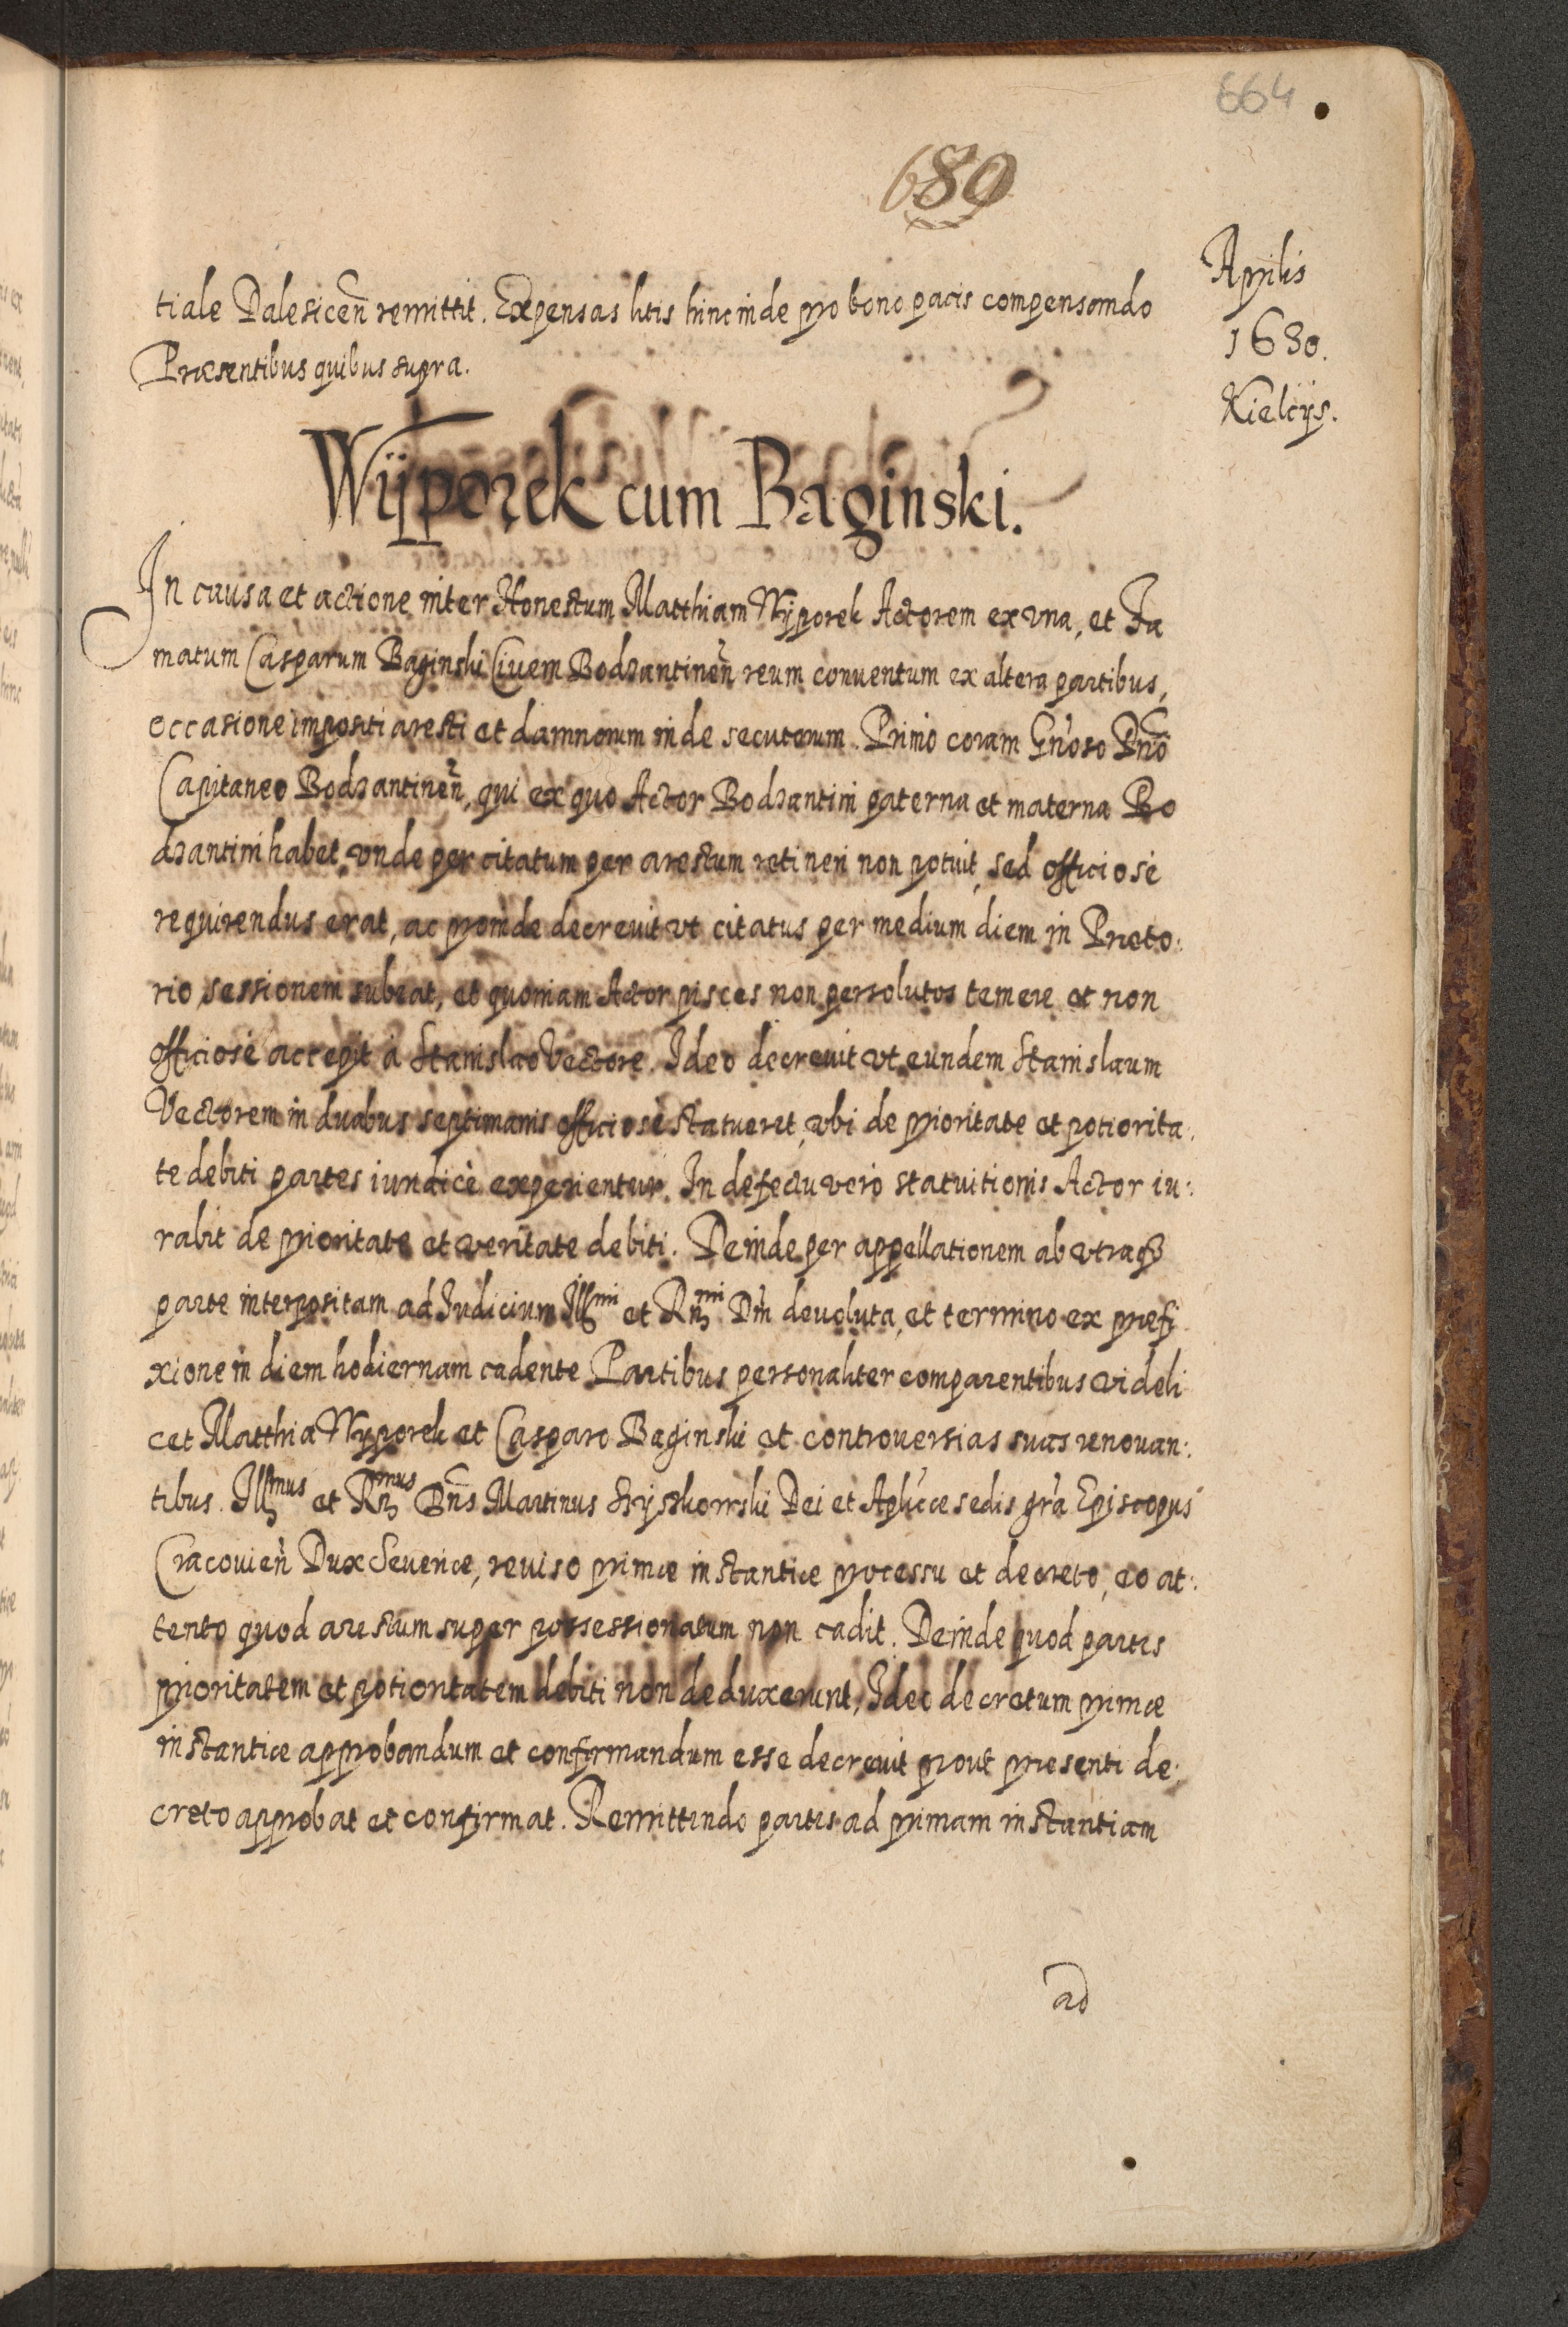 664
689
Aprilis
1630.
Kielcijs.
tiale Dalesiceñ remittit. Expensas litis hinc inde pro bono pacis compensando
Præsentibus quibus supra.
Wijporek cum Baginski.
In causa et actione inter Honestum Matthiam Wijporek Actorem ex vna, et Fa
matum Casparum Baginski Civem Bodzantineñ reum conuentum ex altera partibus,
occasione impositi aresti et damnorum inde secutorum. Primo coram Gñoso Dño
Capitaneo Bodzantineñ, qui ex quo Actor Bodzantini paterna et materna Bo
dzantini habet, vnde per citatum per arestum retineri non potuit, sed officiosè
requirendus erat, ac proinde decreuit vt citatus per medium diem in Præto:
rio sessionem subeat, et quoniam Actor pisces non persolutos temere et non
officiosè accepit à Stanislao Vectore. Ideo decreuit vt eundem Stanislaum
Vectorem in duabus septimanis officiosè statueret, vbi de prioritate et potiorita:
te debiti partes iuridicè experientur. In defectu verò statuitionis Actor iu:
rabit de prioritate et veritate debiti. Deinde per appellationem ab vtraqȝ
parte interpositam ad Iudicium Illmi et Rmi Dñi devoluta, et termino ex præfi
xione in diem hodiernam cadente Partibus personaliter comparentibus videli
cet Matthia Wyporek et Casparo Baginski et controuersias suas renouan:
tibus. Illmus et Rmus Dñs Martinus Szyszkowski Dei et Aplicæ sedis gr̃a Episcopus
Cracovieñ Dux Seueriæ, reuiso primæ instantiæ processu et decreto, eo at:
tento quod arestum super possessionatum non cadit. Deinde quod partes
prioritatem et potioritatem debiti non deduxerunt, Ideo decretum primæ
instantiæ approbandum et confirmandum esse decreuit prout præsenti de:
creto approbat et confirmat. Remittendo partes ad primam instantiam
ad